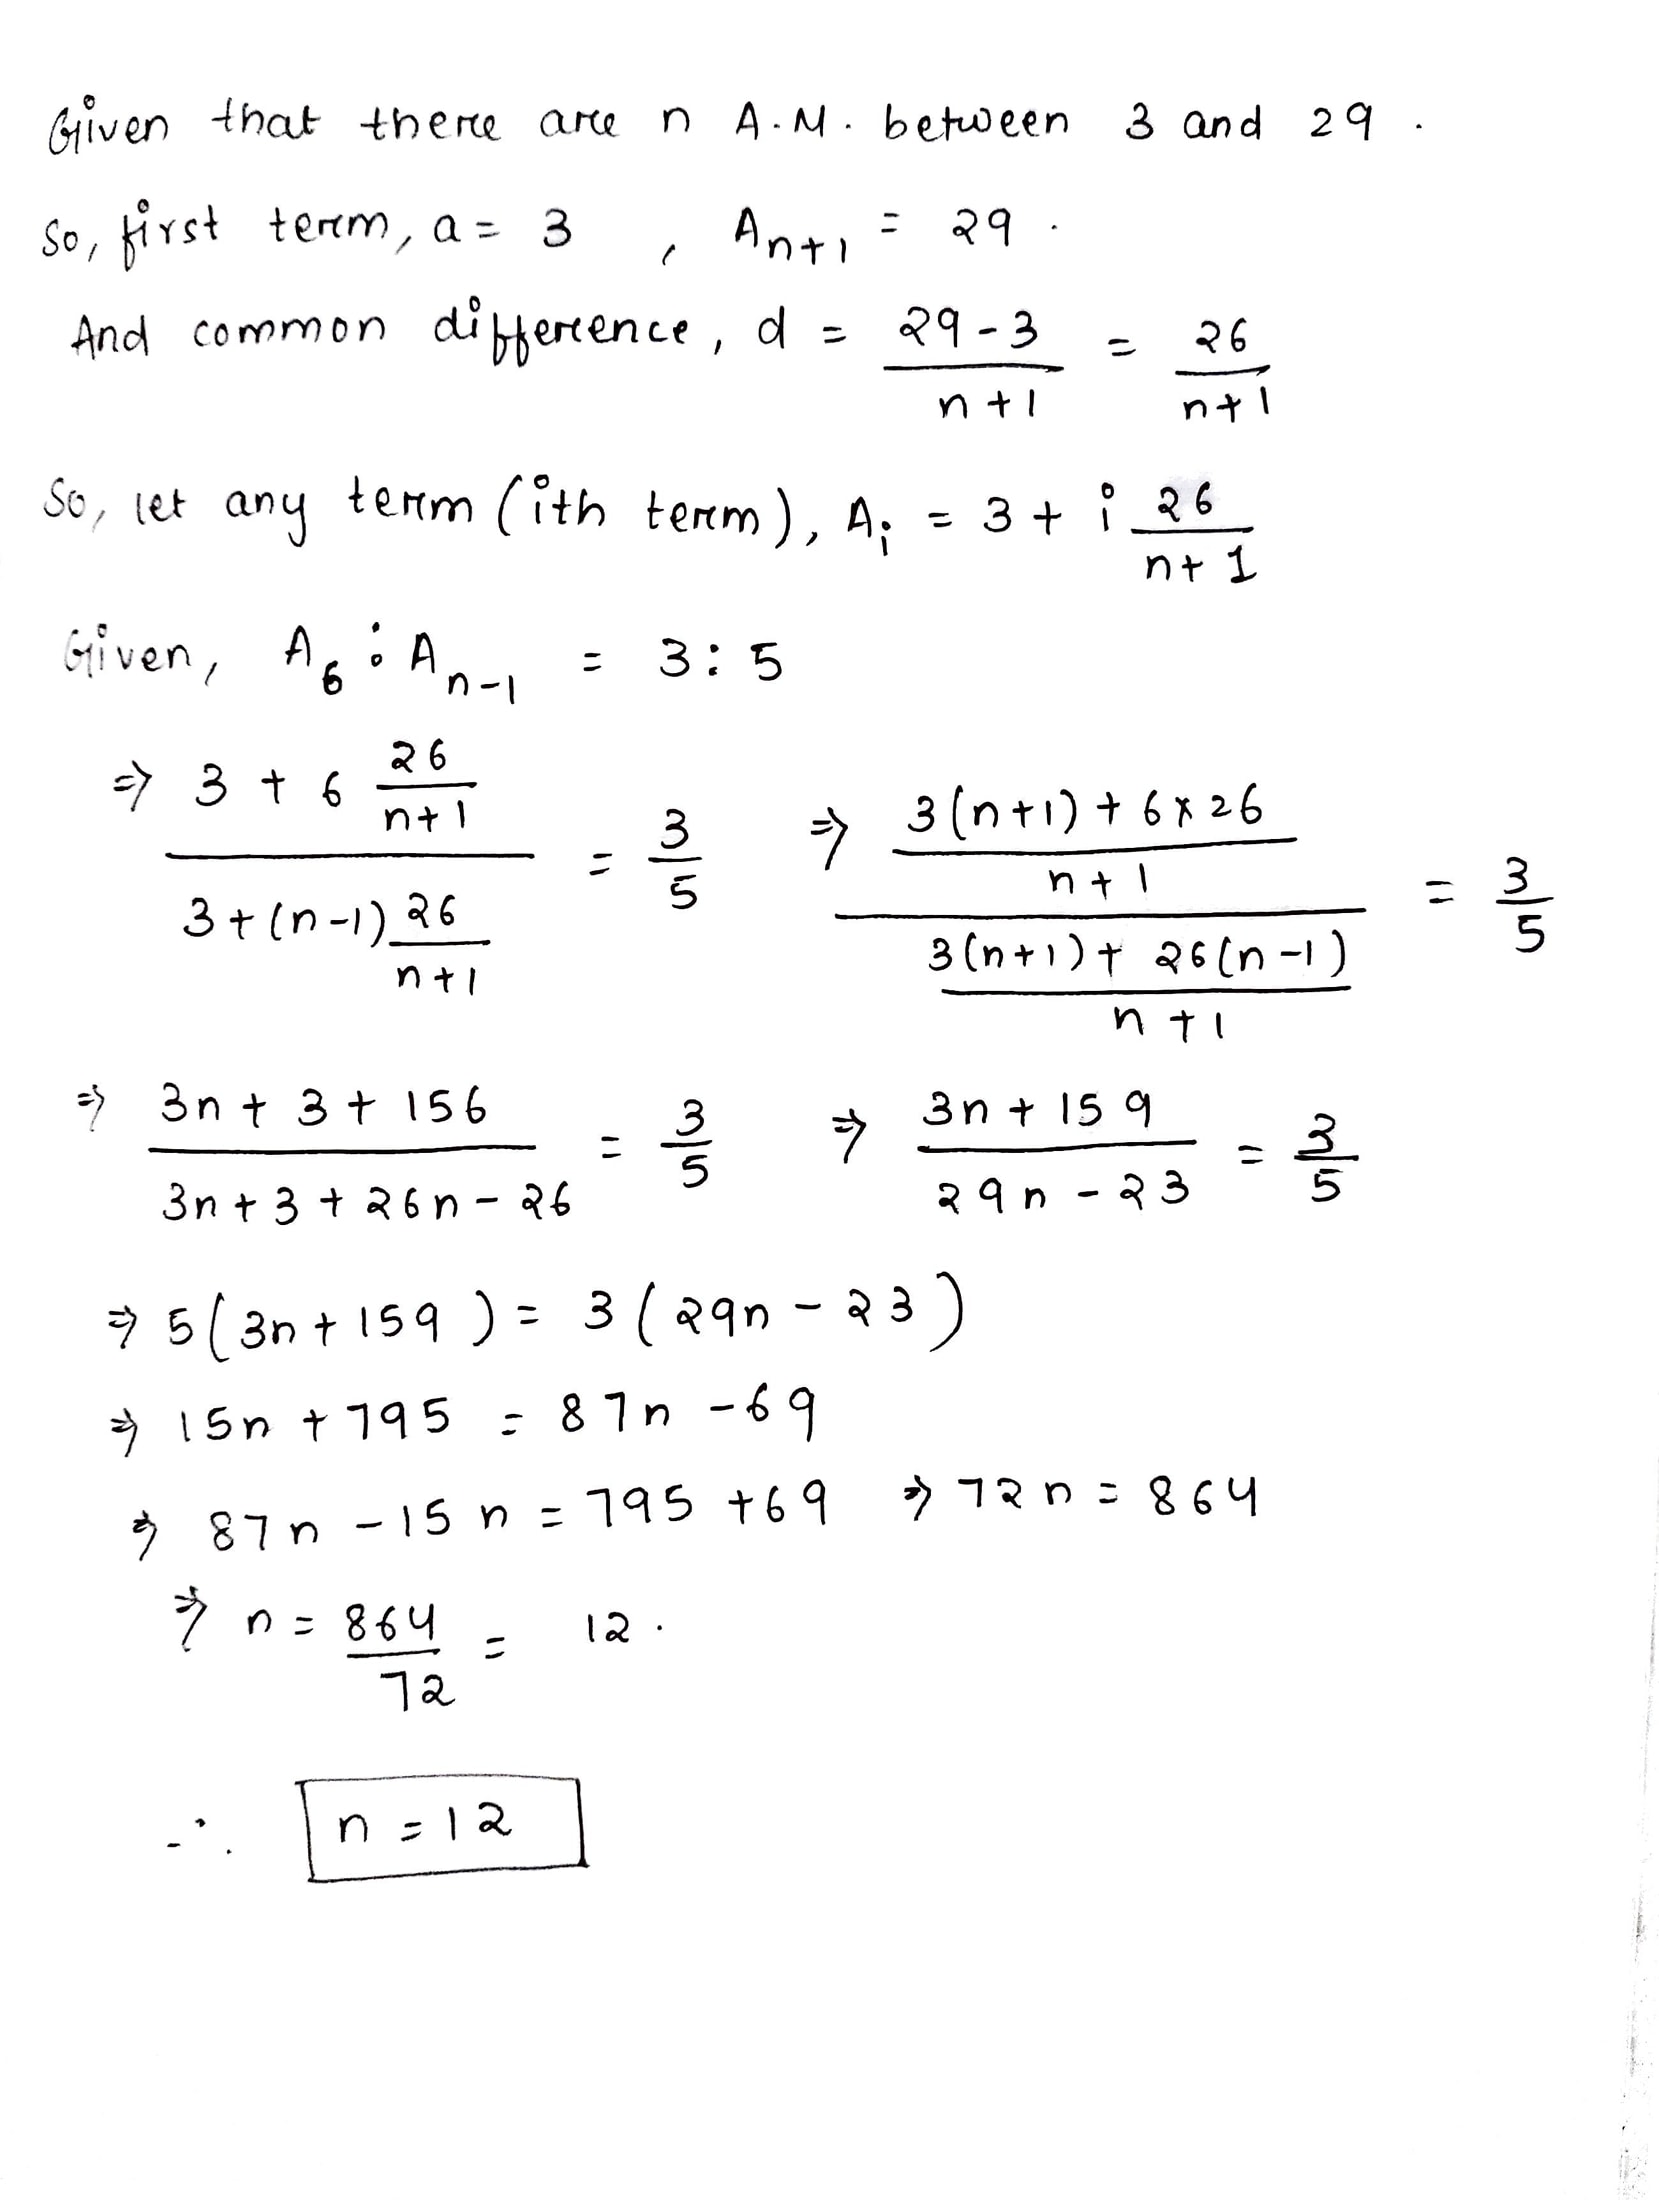 Given that there are n A.M. between 3 and 29.
So, first term, a = 3, A_{n+1} = 29.
And common difference, d = \frac{29-3}{n+1} = \frac{26}{n+1}
So, let any term (ith term), A_i = 3 + i \frac{26}{n+1}
Given, A_6 : A_{n-1} = 3:5
⇒ \frac{3 + 6 \frac{26}{n+1}}{3+(n-1)\frac{26}{n+1}} = \frac{3}{5} ⇒ \frac{\frac{3(n+1)+6×26}{n+1}}{\frac{3(n+1)+26(n-1)}{n+1}} = \frac{3}{5}
⇒ \frac{3n+3+156}{3n+3+26n-26} = \frac{3}{5} ⇒ \frac{3n+159}{29n-23} = \frac{3}{5}
⇒ 5(3n+159) = 3(29n-23)
⇒ 15n + 795 = 87n - 69
⇒ 87n - 15n = 795 + 69 ⇒ 72n = 864
⇒ n = \frac{864}{72} = 12.
∴ n = 12